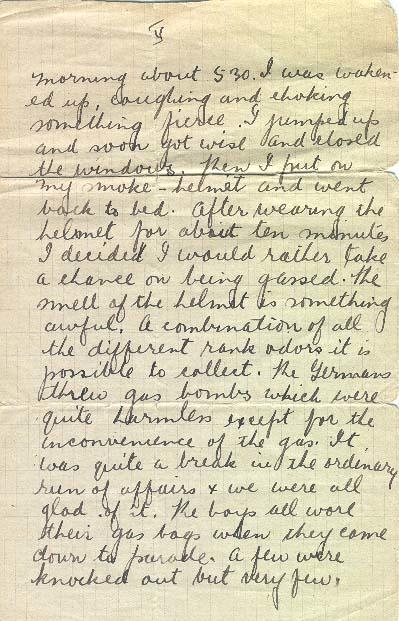 V
morning about 530. I was waken-
ed up, coughing and choking
something fierce. I jumped up
and soon got wise and closed
the windows. Then I put on
my smoke-helmet and went
back to bed. After wearing the
helmet for about ten minutes
I decided I would rather take
a chance on being gassed. The
smell of the helmet is something
awful. A combination of all
the different rank odors it is
possible to collect. The Germans
threw gas bombs which were
quite harmless except for the
inconvenience of the gas. It
was quite a break in the ordinary
run of affairs & we were all
glad of it. The boys all wore
their gas bags when they came
down to parade. A few were
knocked out but very few.